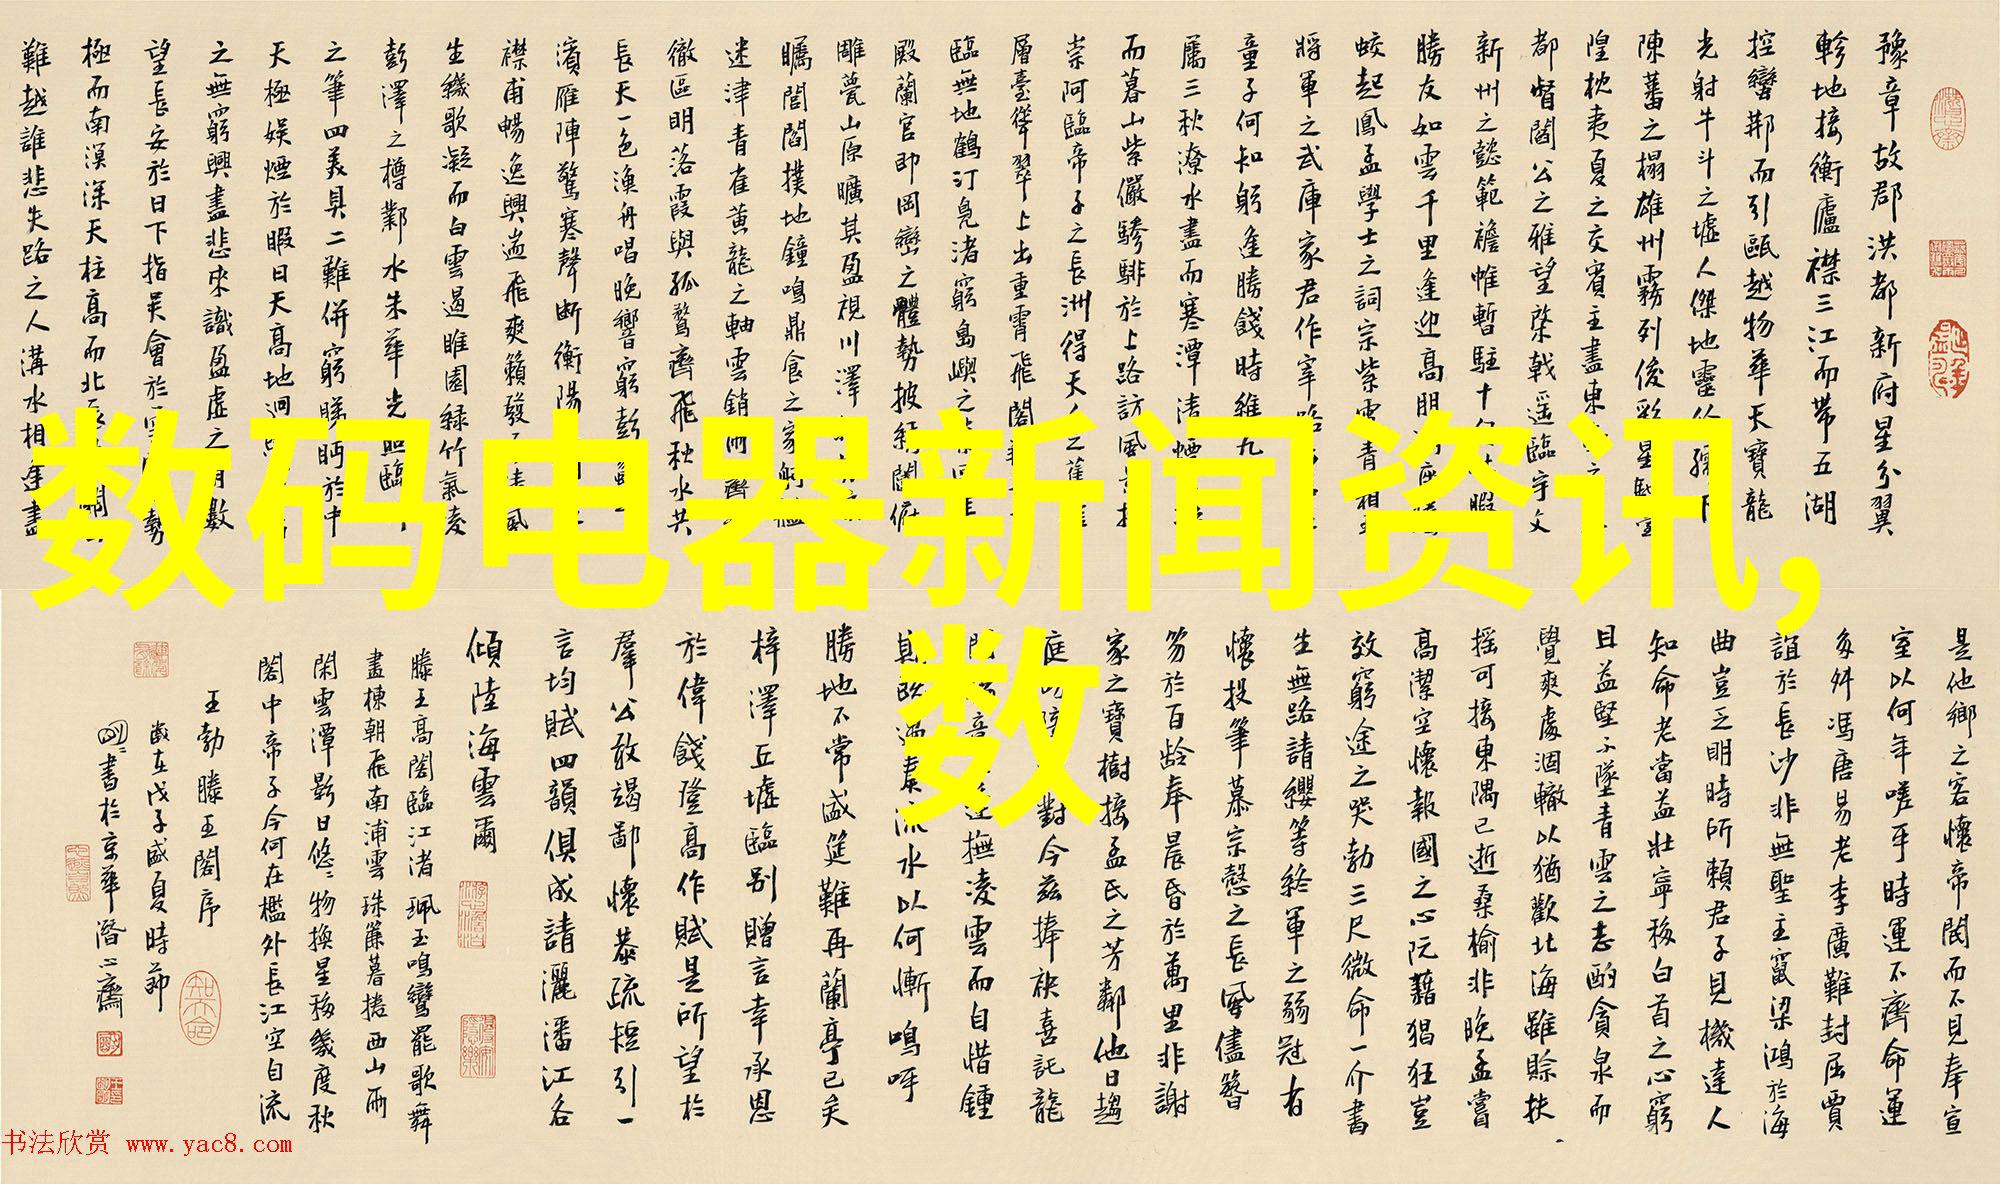 豫章故郡洪都新府星分翼
軫地接衡廬襟三江而帶五湖
控蠻荊而引甌越物華天寶龍
光射牛斗之墟人傑地靈下
陳蕃之榻雄州霧列俊彩星
隍枕夷夏之交賓主盡東
都督閻公之雅望棨戟遥臨宇文
新州之懿範襜帷暫駐十暇
勝友如雲千里逢迎高朋
蛟起鳳孟學士之詞宗紫電青
將軍之武庫家君作宰路
童子何知躬逢勝餞時維九
屬三秋潦水盡而寒潭清煙
而暮山紫儼驂騑於上路訪風
崇阿臨帝子之長洲得天人之舊
層臺聳翠上出重霄飛閣
臨無地鶴汀鳧渚窮島嶼之
殿蘭宮即岡巒之體勢披繡闥俯
雕甍山原曠其盈視川澤
矚閭閻撲地鐘鳴鼎食之家舸艦
迷津青雀黃龍之軸雲銷雨霽
徹區明落霞與孤鶩齊飛秋水共
長天一色漁舟唱晚響窮彭
濱雁陣驚寒聲斷衡陽
襟甫暢逸興遄飛爽籟發清風
生纖歌凝而白雲遏睢園緑竹氣凌
彭澤之樽鄴水朱華光照臨
之筆四美具二難併窮睇眄於中
天極娛煙於暇日天高地迥
之無窮興盡悲來識盈虛之數
望長安於日下指吳會於雲勢
極而南溟深天柱高而北
難越誰悲失路之人溝水相逢盡
是他鄉之客懷帝閽而不見奉宣
室以何年嗟乎時運不齊命運
多舛馮唐易老李廣難封屈賈
誼於長沙非無聖主竄梁鴻於海
曲豈乏明時所賴君子見機達人
知命老當益壯寧移白首之心窮
且益堅不墜青雲之志酌貪泉而
覺爽處涸轍以猶歡北海雖賒扶
搖可接東隅已逝桑榆非晚孟嘗
高潔空懷報國之心阮藉猖狂豈
效窮途之哭勃三尺微命一介書
生無路請纓等終軍之弱冠有
懷投筆慕宗愨之長風儘簪
笏於百齡奉晨昏於萬里非謝
家之寶樹接孟氏之芳鄰他日趨
庭對今茲捧袂喜託龍
撫凌雲而自惜鍾
奏流水以何慚嗚呼
勝地不常盛筵難再蘭亭已矣
梓澤丘墟臨別贈言幸承恩
於偉餞登高作賦是所望於
羣公敢竭鄙懷恭疏短引一
言均賦四韻俱成請灑潘江各
傾陸海雲爾
滕王高閣臨江渚珮玉鳴鸞罷歌舞
畫棟朝飛南浦雲珠簾暮捲西山雨
閑雲潭影日悠〻物換星移幾度秋
閣中帝子今何在檻外長江空自流
王勃滕王閣序
歲在戊子盛夏時節
書於京華潛心齋
数码电器新闻资讯,
数
书法欣赏 www.yac8.com